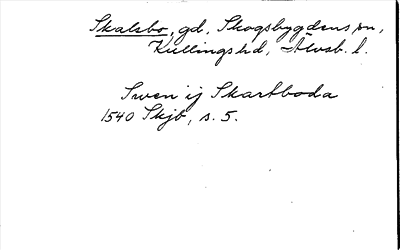 Skalsbo, gd, Skogsbygdens sn,
Kullings hd, Älvsb. l.
Swen ij Skartboda
1540 Skjb, s. 5.